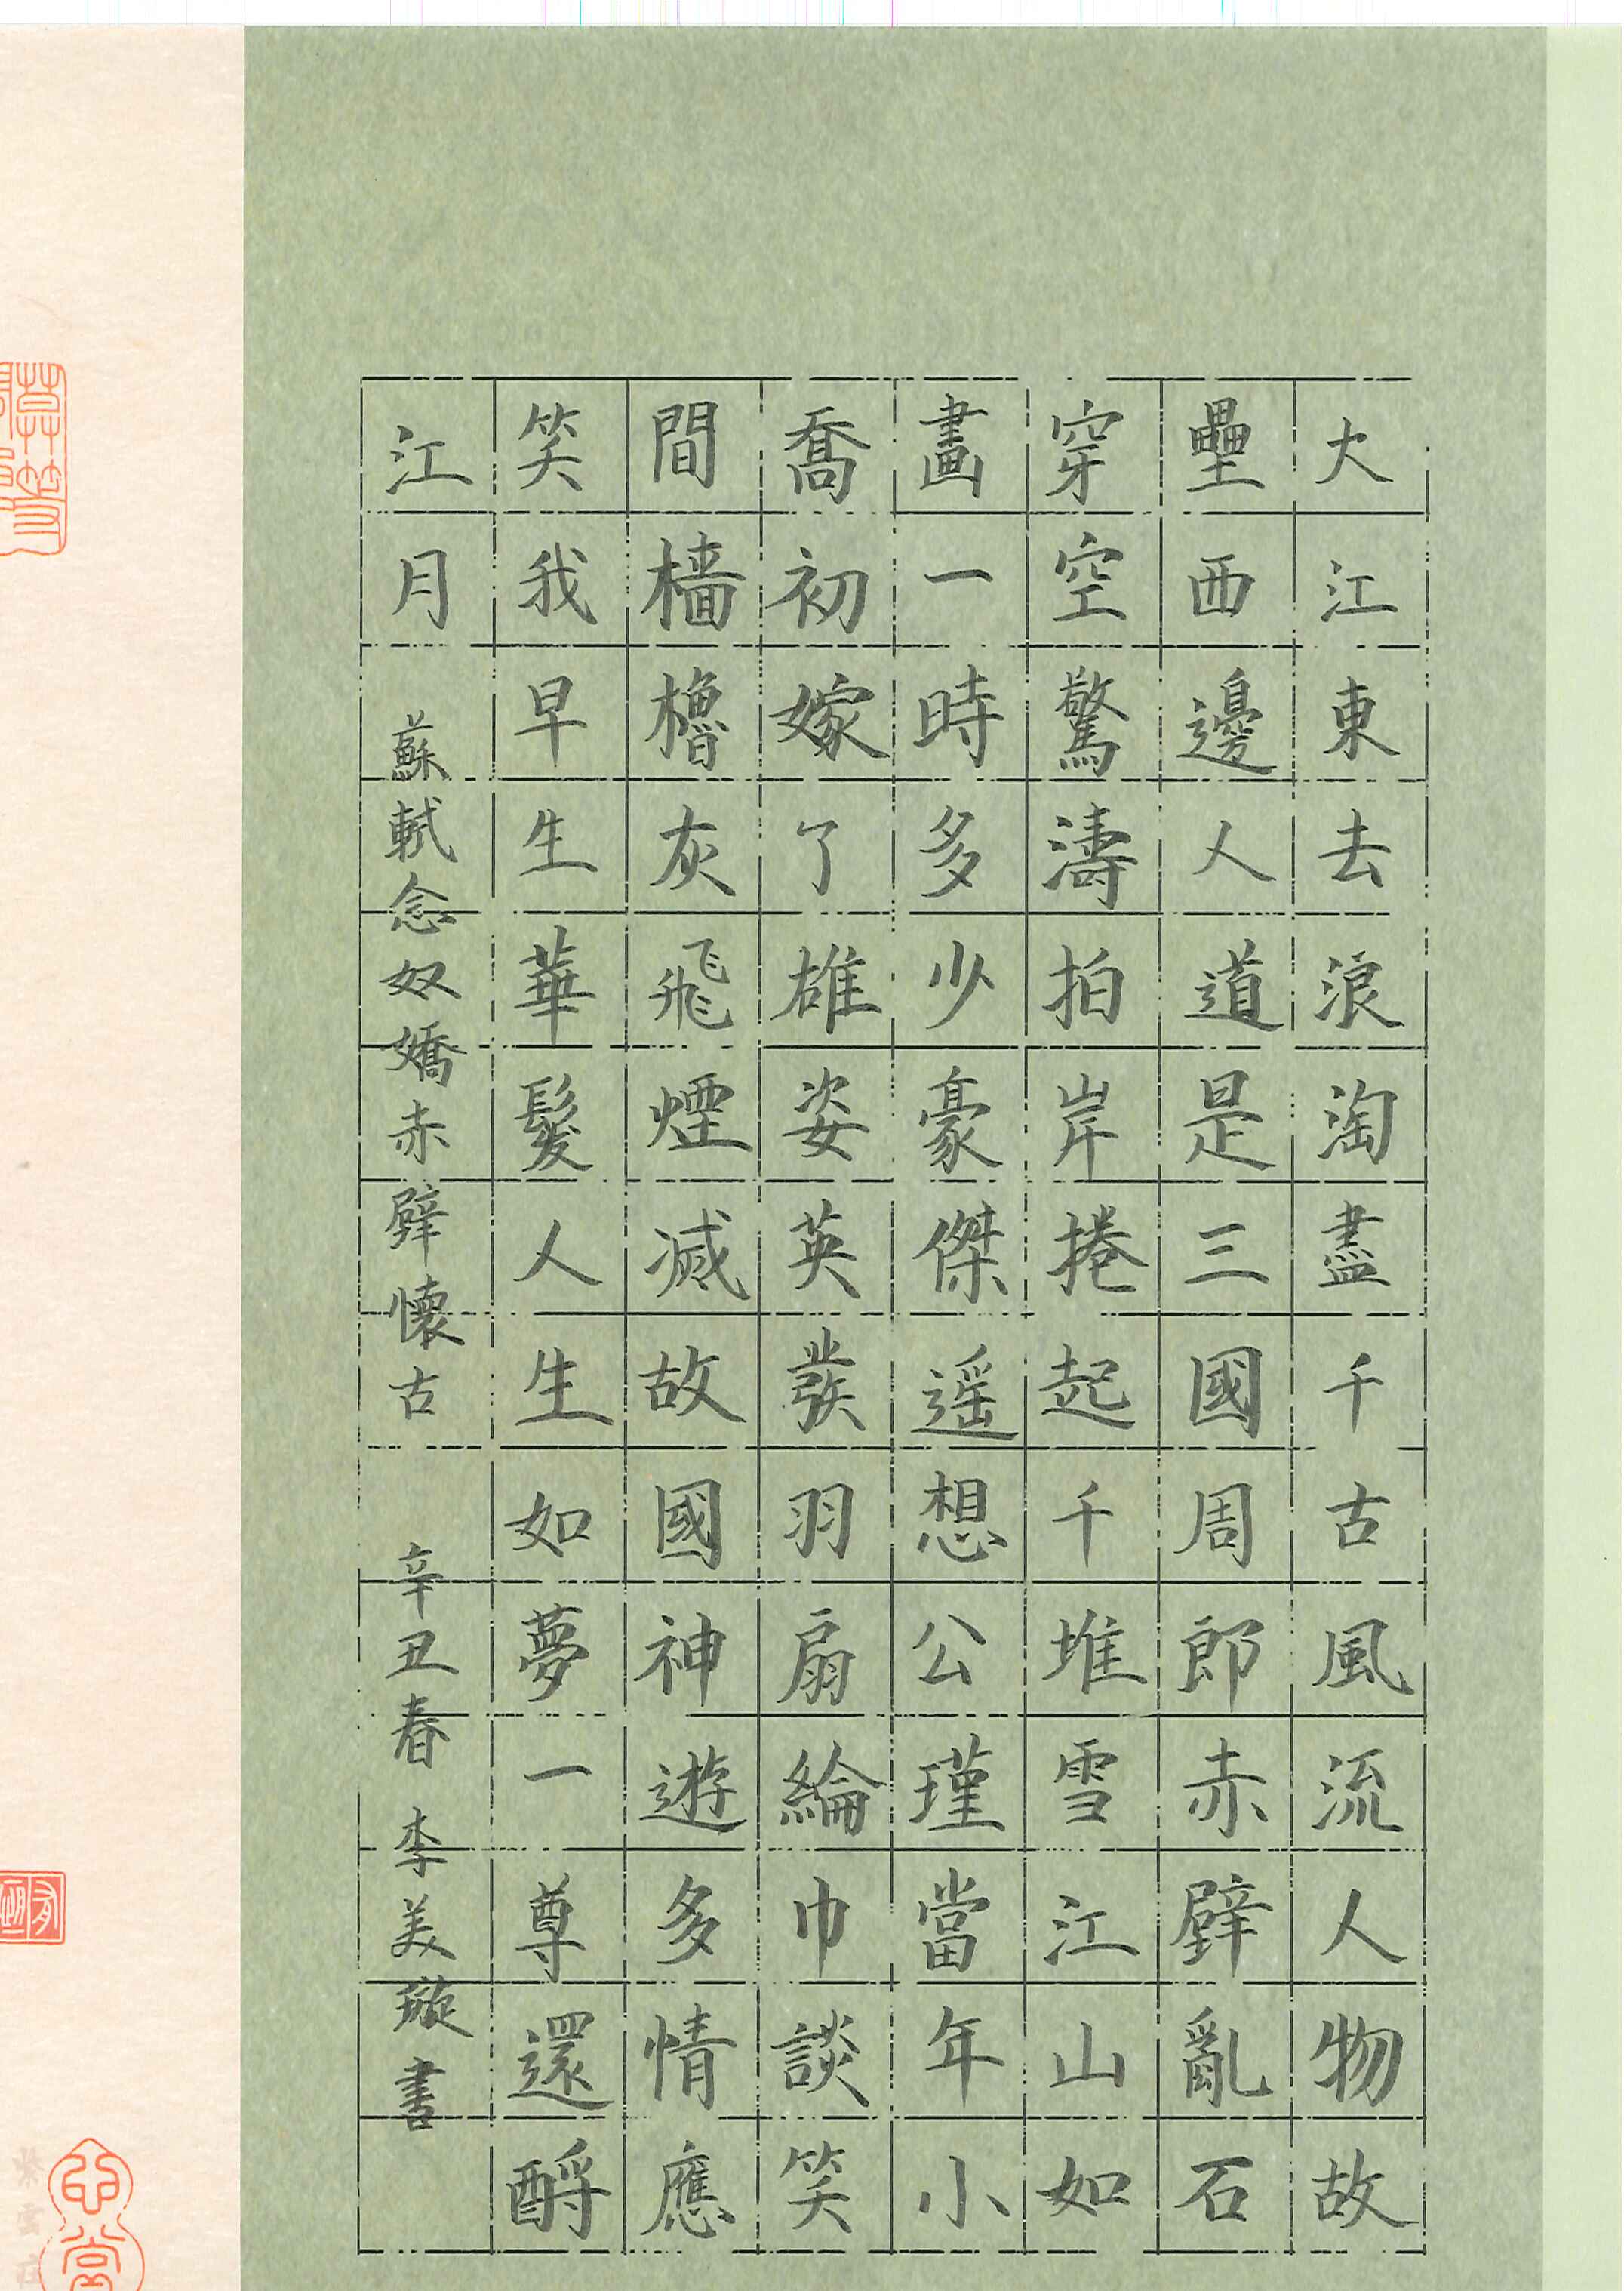 大江東去浪淘盡千古風流人物故
壘西邊人道是三國周郎赤壁亂石
穿空驚濤拍岸捲起千堆雪江山如
畫一時多少豪傑遥想公瑾當年小
喬初嫁了雄姿英發羽扇綸巾談笑
間檣櫓灰飛煙滅故國神遊多情應
笑我早生華髮人生如夢一尊還酹
江月
蘇軾念奴嬌赤壁懷古
辛丑春 李美璇書